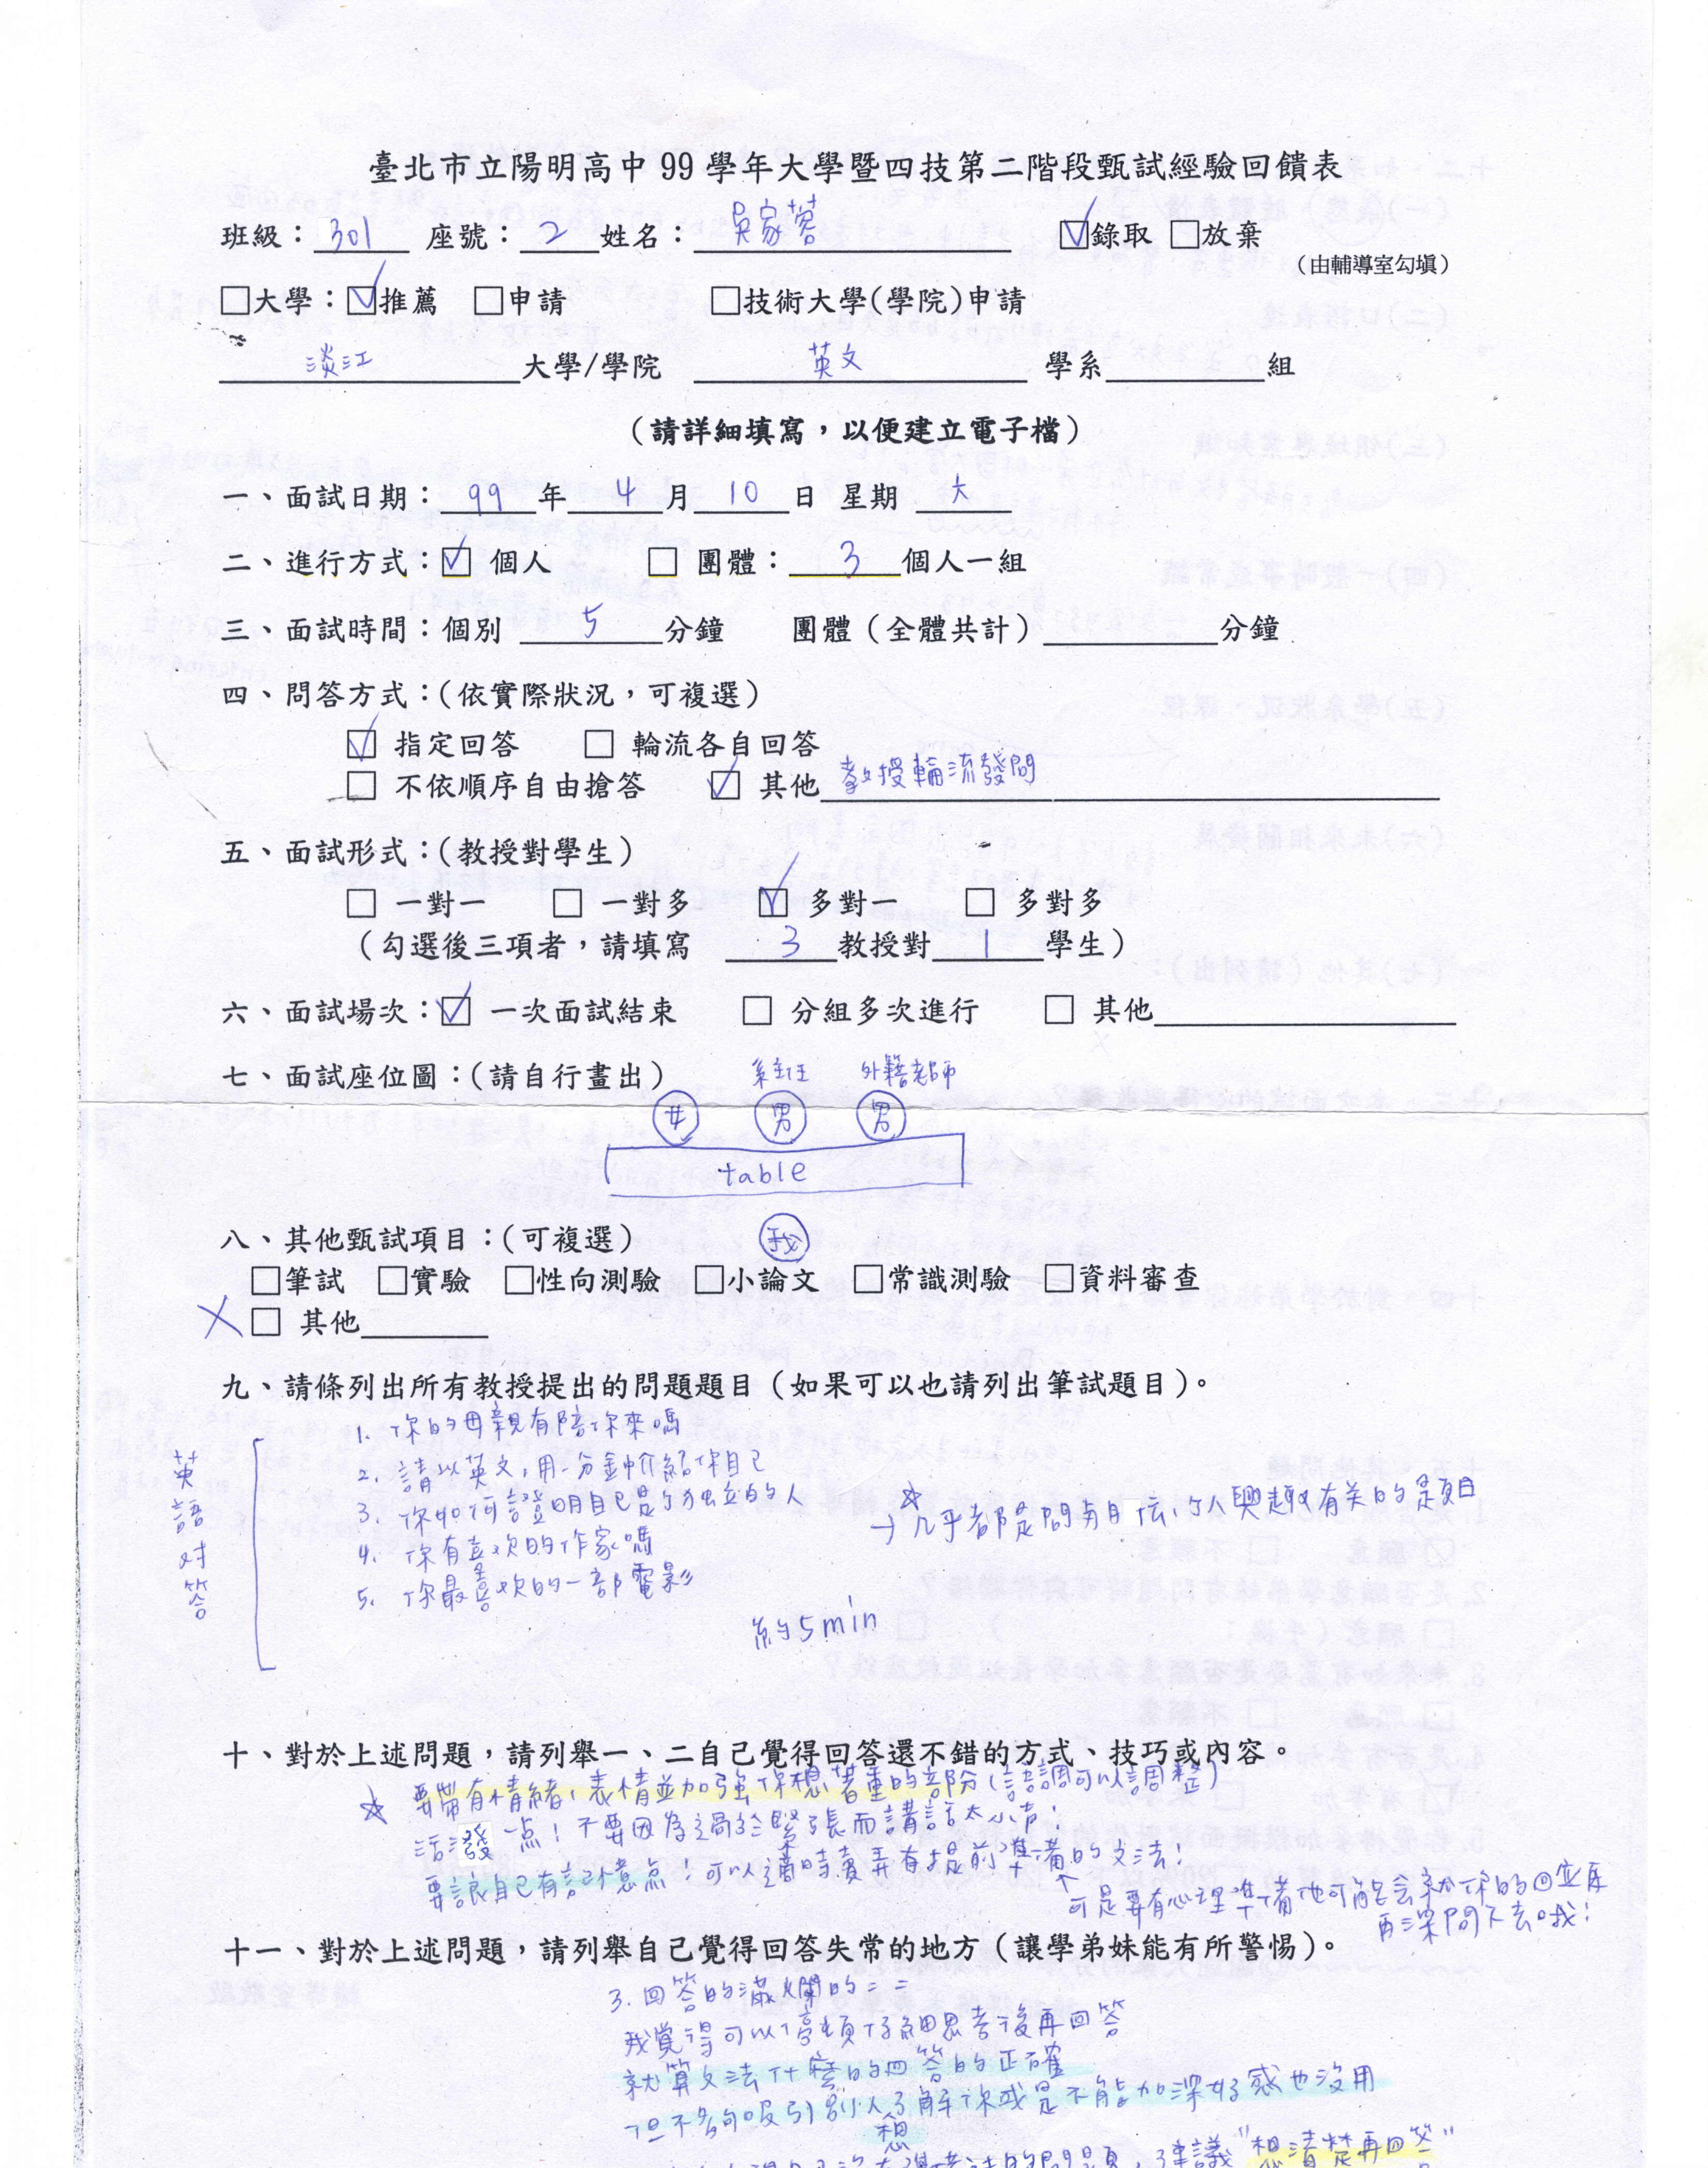 臺北市立陽明高中 99 學年大學暨四技第二階段甄試經驗回饋表
班級：301 座號：2 姓名：吳家蓉 ☑錄取 □放棄
（由輔導室勾填）
□大學：☑推薦 □申請 □技術大學(學院)申請
淡江 大學/學院 英文 學系 組
（請詳細填寫，以便建立電子檔）
一、面試日期：99 年 4 月 10 日 星期 六
二、進行方式：☑ 個人 □ 團體：3 個人一組
三、面試時間：個別 5 分鐘 團體（全體共計） 分鐘
四、問答方式：(依實際狀況，可複選)
☑ 指定回答 □ 輪流各自回答
□ 不依順序自由搶答 ☑ 其他 教授輪流發問
五、面試形式：(教授對學生)
□ 一對一 □ 一對多 ☑ 多對一 □ 多對多
（勾選後三項者，請填寫 3 教授對 1 學生）
六、面試場次：☑ 一次面試結束 □ 分組多次進行 □ 其他
七、面試座位圖：(請自行畫出) 系主任 外籍老師
女 男 男
table
我
八、其他甄試項目：(可複選)
□筆試 □實驗 □性向測驗 □小論文 □常識測驗 □資料審查
╳ □ 其他
九、請條列出所有教授提出的問題題目（如果可以也請列出筆試題目）。
英語对答
1. 你的母親有陪你來嗎
2. 請以英文，用一分鐘介紹你自己
3. 你如何證明自己是个独立的人
4. 你有喜欢的作家嗎
5. 你最喜欢的一部電影
☆→几乎都是問與自傳、个人興趣有关的題目
約5min
十、對於上述問題，請列舉一、二自己覺得回答還不錯的方式、技巧或內容。
☆ 要帶有情緒、表情並加強你想着重的部份(語調可以調整)
活潑一点！不要因為過於緊張而講話太小声！
要讓自己有記憶点！可以適時賣弄有提前準備的文法！
↑可是要有心理準備他可能会就你的回应再
再深問下去哦！
十一、對於上述問題，請列舉自己覺得回答失常的地方（讓學弟妹能有所警惕）。
3. 回答的滿爛的= =
我覺得可以停頓仔細思考後再回答
就算文法什麼的回答的正確
但不夠吸引別人想了解你或是不能加深好感也沒用
的問題，建議"想清楚再回答"